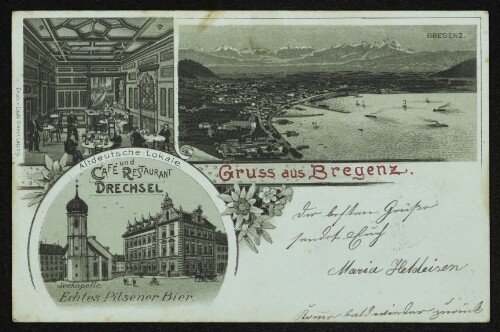 BREGENZ.
Altdeutsche Lokale
und
CAFÉ RESTAURANT
DRECHSEL
Gruss aus Bregenz.
Seekapelle.
Echtes Pilsener Bier.
Die besten Grüße
sendet Euch
Maria Heldeisen
Komme bald wieder zurück